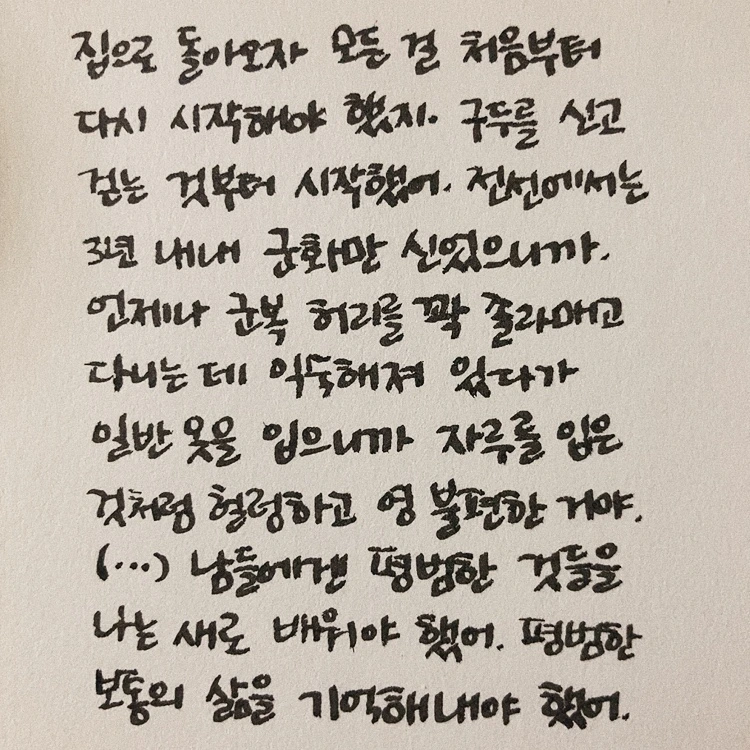 집으로 돌아오자 모든 걸 처음부터
다시 시작해야 했지. 구두를 신고
걷는 것부터 시작했어. 전선에서는
3년 내내 군화만 신었으니까.
언제나 군복 허리를 꽉 졸라매고
다니는 데 익숙해져 있다가
일반 옷을 입으니까 자루를 입은
것처럼 헐렁하고 영 불편한 거야.
(...) 남들에겐 평범한 것들을
나는 새로 배워야 했어. 평범한
보통의 삶을 기억해내야 했어.